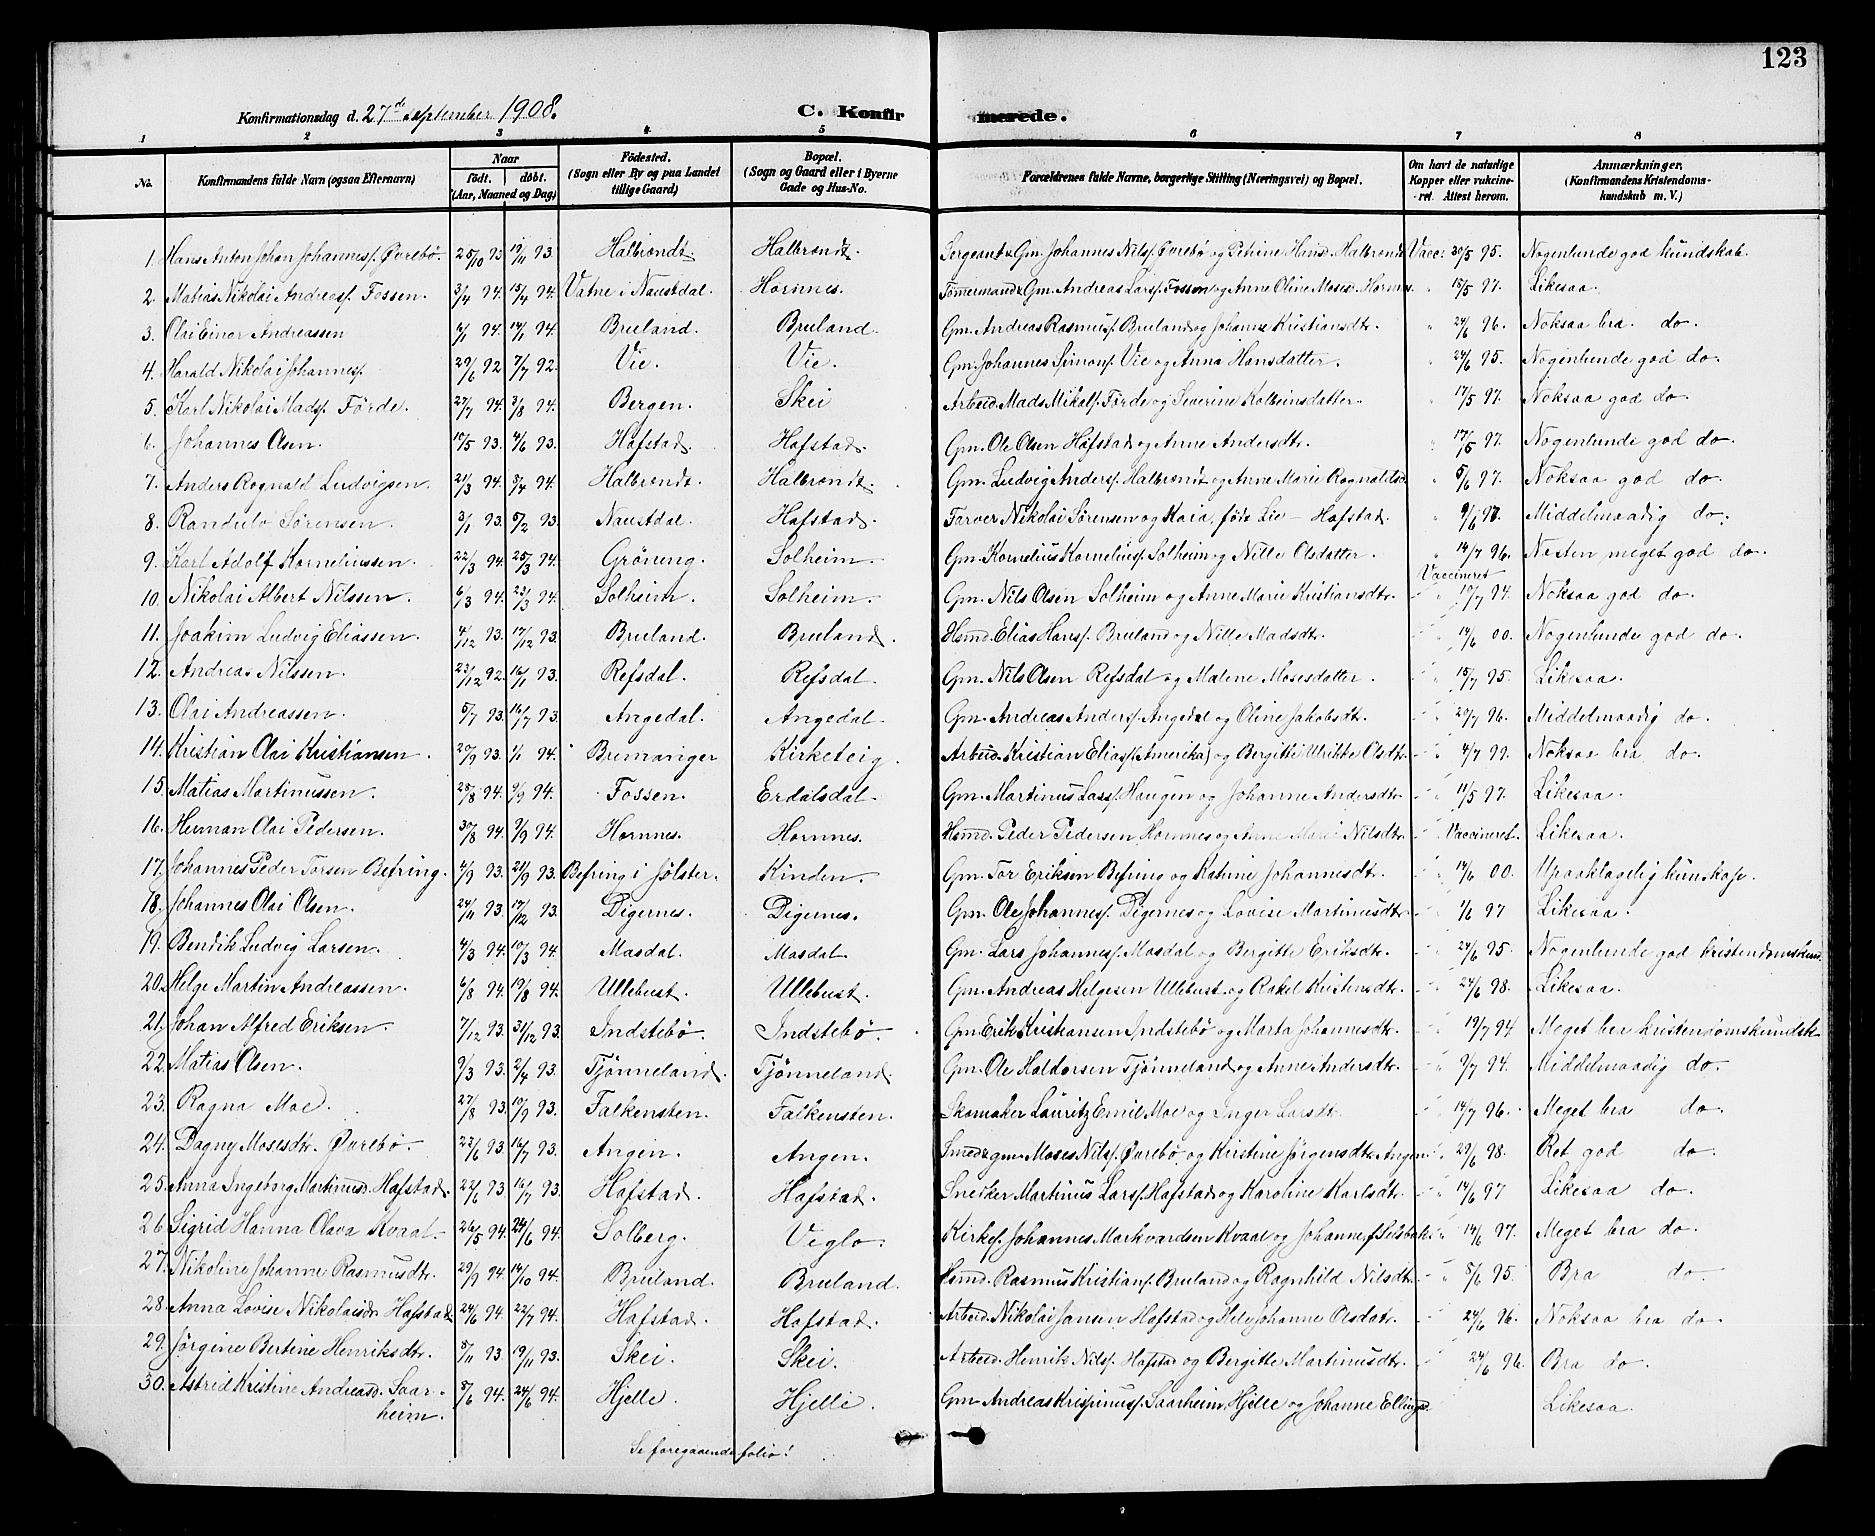 123
Konfirmationsdag d. 27de september 1908. C. Konfirmerede.
1 2 3 4 5 6 7 8
No. Konfirmandens fulde Navn (ogsaa Efternavn) Naar födt. döbt. (Aar, Maaned og Dag) Födested. (Sogn eller By og paa Landet tillige Gaard) Bopæl. (Sogn og Gaard eller i Byerne Gade og Hus-No. Forældrenes fulde Navne, borgerlige Stilling (Næringsvei) og Bopæl. Om havt de naturlige Kopper eller vakcineret. Attest herom. Anmærkninger. (Konfirmandens Kristendomskundskab m. V.)
1. Hans Anton Johan Johannesf. Øvrebø. 25/10 93 19/11 93. Halbrendt. Halbrendt. Sergeant & Gm. Johannes Nilsf. Øvrebø og Petrine Hansd. Halbrendt Vacc: 30/5 95. Nogenlunde god kundskab.
2. Matias Nikolai Andreasf. Fossen. 3/4 94. 15/4 94. Vatne i Naustdal. Hornnes. Tömermand & Gm. Andreas Larsf. Fossen og Anne Oline Mosesd. Hornnes. " 18/5 97. Likesaa.
3. Olai Einar Andreassen 4/1 94. 14/1 94. Bruland. Bruland. Gm. Andreas Rasmusf. Bruland og Johanne Kristiansdtr. " 24/6 96. Noksaa bra do.
4. Harald Nikolai Johannesf. 29/6 92 7/7 92. Vie. Vie. Gm. Johannes Simonf. Vie og Anna Hansdatter. " 24/6 95. Nogenlunde god do.
5. Karl Nikolai Madsf. Förde. 23/7 94. 3/8 94. Bergen. Skei Arbeid. Mads Mikalf. Förde og Severine Kolbeinsdatter. 17/5 97. Noksaa god do.
6. Johannes Olsen. 10/5 93. 4/6 93. Hafstad. Hafstad. Gm. Ole Olsen Hafstad og Anne Andersdtr. " 17/5 97. Nogenlunde god do.
7. Anders Ragnald Ludvigsen. 21/3 94. 3/4 94. Halbrendt. Halbrendt. Gm. Ludvig Andersf. Halbrendt og Anne Marie Ragnaldsd. " 5/6 97. Noksaa god do.
8. Randulv Sørensen. 3/1 93. 5/2 93. Naustdal. Hafstad. Farver Nikolai Sørensen og Kaia, föde Lie – Hafstad. " 9/6 97. Middelmaadig do.
9. Karl Adolf Korneliussen. 22/3 94. 25/3 94. Gröneng. Solheim. Gm. Kornelius Korneliusf. Solheim og Nille Olsdatter. " 14/7 96. Næsten meget god do.
10. Nikolai Albert Nilssen. 6/3 94. 23/3 94. Solheim. Solheim. Gm. Nils Olsen Solheim og Anne Marie Kristiansdtr. Vaccineret 19/7 94. Noksaa god do.
11. Joakim Ludvig Eliassen. 4/12 93. 17/12 93. Bruland. Bruland. Hsmd. Elias Hansf. Bruland og Nille Madsdtr. " 14/6 00. Nogenlunde god do.
12. Andreas Nilssen. 23/12 92. 16/1 93. Refsdal. Refsdal. Gm. Nils Olsen Refsdal og Malene Mosesdatter. " 15/7 95. Likesaa.
13. Olai Andreassen. 5/7 93. 16/7 93. Angedal. Angedal. Gm. Andreas Andersf. Angedal og Oline Jakobsdtr. " 20/7 96. Middelmaadig do.
14. Kristian Olai Kristiansen. 20/9 93. 1/1 94. Bremanger Kirketeig. Arbeid. Kristian Eliasf. (Amerika) og Bergitte Ulrikke Olsdtr. " 4/7 99. Noksaa bra do.
15. Matias Martinussen. 28/8 94. 9/9 94. Fossen. Erdalsdal. Gm. Martinus Larsf. Haugen og Johanne Andersdtr. " 11/5 97. Likesaa.
16. Herman Olai Pedersen. 30/8 94. 9/9 94. Hornnes. Hornnes. Hsmd. Peder Pedersen Hornnes og Anne Marie Nilsdtr. Vaccineret. Likesaa.
17. Johannes Peder Torsen Befring. 4/9 93. 21/9 93. Befring i Jölster. Kinden. Gm. Tor Eriksen Befring og Katrine Johannesdtr. " 14/6 00. Upaaklagelig kunskap.
18. Johannes Olai Olsen. 24/11 93. 17/12 93. Digernes. Digernes. Gm. Ole Johannesf. Digernes og Lovise Martinusdtr. " 1/6 97 Likesaa.
19. Bendik Ludvig Larsen. 4/3 94. 10/3 94. Masdal Masdal. Gm. Lars Johannesf. Masdal og Bergitte Eriksdtr. " 24/6 95. Nogenlunde god kristendomskund.
20. Helge Martin Andreassen. 6/8 94. 19/8 94. Ullebust. Ullebust. Gm. Andreas Helgesen Ullebust og Rakel Kristensdtr. " 24/6 98. Likesaa.
21. Johan Alfred Eriksen. 7/12 93. 31/12 93. Indstebö. Indstebö. Gm. Erik Kristiansen Indstebö og Marta Johannesdtr. " 19/7 94 Meget bra kristendomskundsk.
22. Matias Olsen. 9/3 93. 2/4 93. Tjönneland. Tjönneland Gm. Ole Haldorsen Tjönneland og Anne Andersdtr. " 9/7 94. Middelmaadig do.
23. Ragna Moe. 27/8 93. 10/9 93. Falkensten. Falkensten. Skomaker Lauritz Emil Moe og Inger Larsdt. " 14/7 96. Meget bra do.
24. Dagny Mosesdtr. Øvrebø. 23/6 93. 16/7 93. Angen. Angen. Smed & gm. Moses Nilsf. Øvrebø og Kirstine Jörgensdtr. Angen. " 29/6 98. Ret god do.
25. Anna Ingeborg Martinusd. Hafstad. 22/6 93. 16/7 93. Hafstad. Hafstad. Snedker Martinus Larsf. Hafstad og Karoline Karlsdtr. " 14/6 97 Likesaa do.
26. Sigrid Hanna Olava Kvaal. 26/5 94. 24/6 94. Solberg. Veglo. Kirkes. Johannes Markvardsen Kvaal og Johanne f. Selsbak. " 14/6 97. Meget bra do.
27. Nikoline Johanne Rasmusdtr. 29/9 94. 14/10 94. Bruland. Bruland. Hsmd. Rasmus Kristianf. Bruland og Ragnhild Nilsdtr. " 5/6 95. Bra do.
28. Anna Lovise Nikolaisdtr. Hafstad 24/6 94. 22/7 94. Hafstad. Hafstad. Arbeid. Nikolai Jansen Hafstad og Johanne Olsdatr. 24/6 96. Noksaa bra do.
29. Jørgine Bertine Henriksdtr. 8/11 93. 19/11 93. Skei. Skei. Arbeid. Henrik Nilsf. Hafstad og Bergitte Martinusdtr. " 24/6 96. Bra do.
30. Astrid Kristine Andreasd. Saarheim. 8/6 94. 24/6 94. Hjelle. Hjelle. Gm. Andreas Krispinusf. Saarheim, Hjelle og Johanne Ellingsd. Likesaa.
Se foregaaende folio!